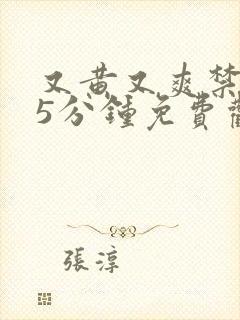 又黄又爽禁
5分鍾免費
張淳